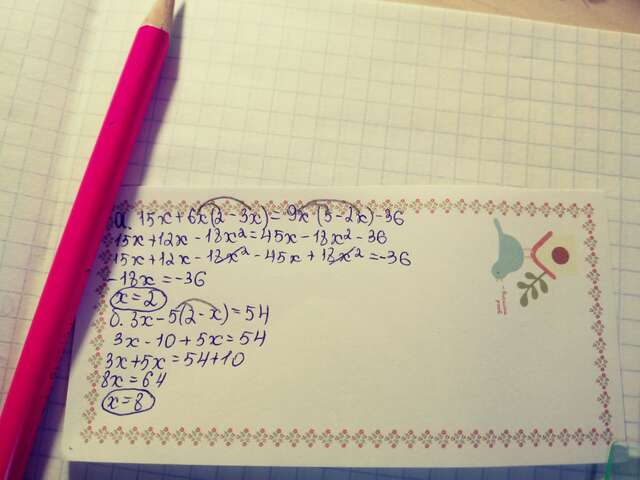 а. 15x + 6x(2 - 3x) = 9x (5 - 2x) - 36
15x + 12x - 18x² = 45x - 18x² - 36
15x + 12x - 18x² - 45x + 18x² = -36
- 18x = -36
x = 2
0. 3x - 5(2 - x) = 54
3x - 10 + 5x = 54
3x + 5x = 54 + 10
8x = 64
x = 8